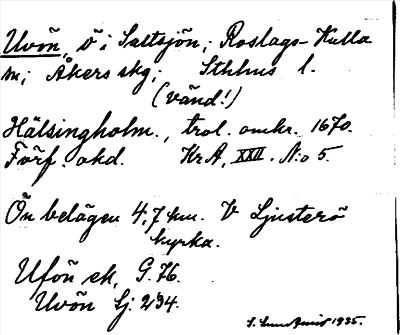 Uvön, ö i Saltsjön; Roslags-Kulla
sn; Åkers skg; Sthlms l.
(vänd!)
Hälsingholm., trol. omkr. 1670.
Förf. okd. KrA, XXII. N:o 5.
Ön belägen 4,7 km. V Ljusterö
kyrka.
Ufön ek. G. 76.
Uvön Sj. 234.
1935.